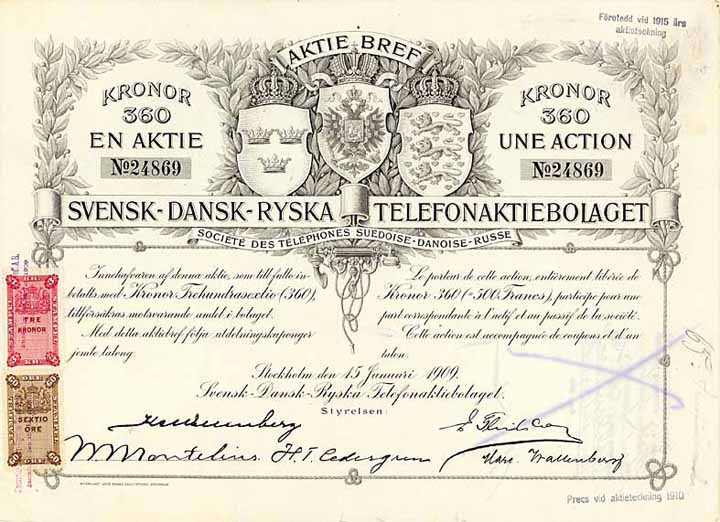 Företedd vid 1915 års
aktieteckning
AKTIE BREF
KRONOR
360
EN AKTIE
No24869
KRONOR
360
UNE ACTION
No24869
SVENSK-DANSK-RYSKA TELEFONAKTIEBOLAGET
SOCIÉTÉ DES TÉLÉPHONES SUEDOISE-DANOISE-RUSSE
Innehafvaren af denna aktie, som till fullo in-
betalts med Kronor Trehundrasextio (360),
tillförsäkras motsvarande andel i bolaget.
Med detta aktiebref följa utdelningskuponger
jemte talong.
Le porteur de cette action, entièrement libérée de
Kronor 360 (=500 Francs), participe pour une
part correspondante à l'actif et au passif de la société.
Cette action est accompagnée de coupons et d'un
talon.
TRE
KRONOR
SEXTIO
ÖRE
Stockholm den 15 Januari 1909.
Svensk-Dansk-Ryska Telefonaktiebolaget.
Styrelsen:
Montelius. H. T. Cedergren Marc. Wallenberg
Precs vid aktieteckning 1910